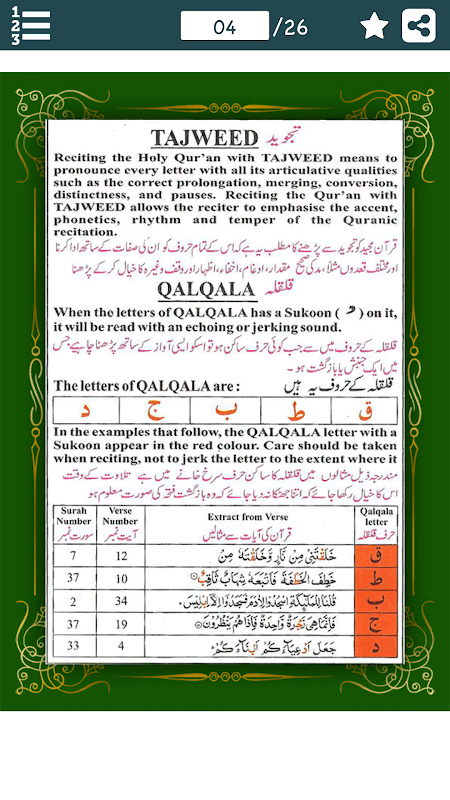 1
2
3
04 /26
TAJWEED تجوید
Reciting the Holy Qur'an with TAJWEED means to
pronounce every letter with all its articulative qualities
such as the correct prolongation, merging, conversion,
distinctness, and pauses. Reciting the Qur'an with
TAJWEED allows the reciter to emphasise the accent,
phonetics, rhythm and temper of the Quranic
recitation.
قرآن مجید کو تجوید سے پڑھنے کا مطلب یہ ہے کہ اس کے تمام حروف کو ان کی صفات کے ساتھ ادا کرنا
اور مختلف قاعدوں مثلاً، مد کی صحیح مقدار، ادغام، اخفاء، اظہار اور وقف وغیرہ کا خیال کر کے پڑھنا
QALQALA قلقلہ
When the letters of QALQALA has a Sukoon ( ) on it,
it will be read with an echoing or jerking sound.
قلقلہ کے حروف میں سے جب کوئی حرف ساکن ہو تو اسکو ایسی آواز کے ساتھ پڑھنا چاہیے جس
میں ایک جنبش یا بازگشت ہو۔
The letters of QALQALA are : قلقلہ کے حروف یہ ہیں
ق ط ب ج د
In the examples that follow, the QALQALA letter with a
Sukoon appear in the red colour. Care should be taken
when reciting, not to jerk the letter to the extent where it
مندرجہ ذیل مثالوں میں قلقلہ کا ساکن حرف سرخ خانے میں ہے تلاوت کے وقت
اس کا خیال رکھا جائے کہ اتنا جھٹکا نہ دیا جائے کہ وہ بازگشت فتحہ کی صورت معلوم ہو
Surah Number سورت نمبر
Verse Number آیت نمبر
Extract from Verse قرآن کی آیات سے مثالیں
Qalqala letter حرف قلقلہ
7 12 خَلَقْتَنِیْ مِنْ نَّارٍ وَّخَلَقْتَهٗ مِنْ ق
37 10 خَطِفَ الْخَطْفَةَ فَاَتْبَعَهٗ شِهَابٌ ثَاقِبٌ ط
2 34 قُلْنَا لِلْمَلٰٓئِكَةِ اسْجُدُوْا لِاٰدَمَ فَسَجَدُوْٓا اِلَّآ اِبْلِیْسَ ب
37 19 فَاِنَّمَا هِیَ زَجْرَةٌ وَّاحِدَةٌ فَاِذَا هُمْ یَنْظُرُوْنَ ج
33 4 جَعَلَ اَدْعِیَآءَ كُمْ اَبْنَآءَ كُمْ د